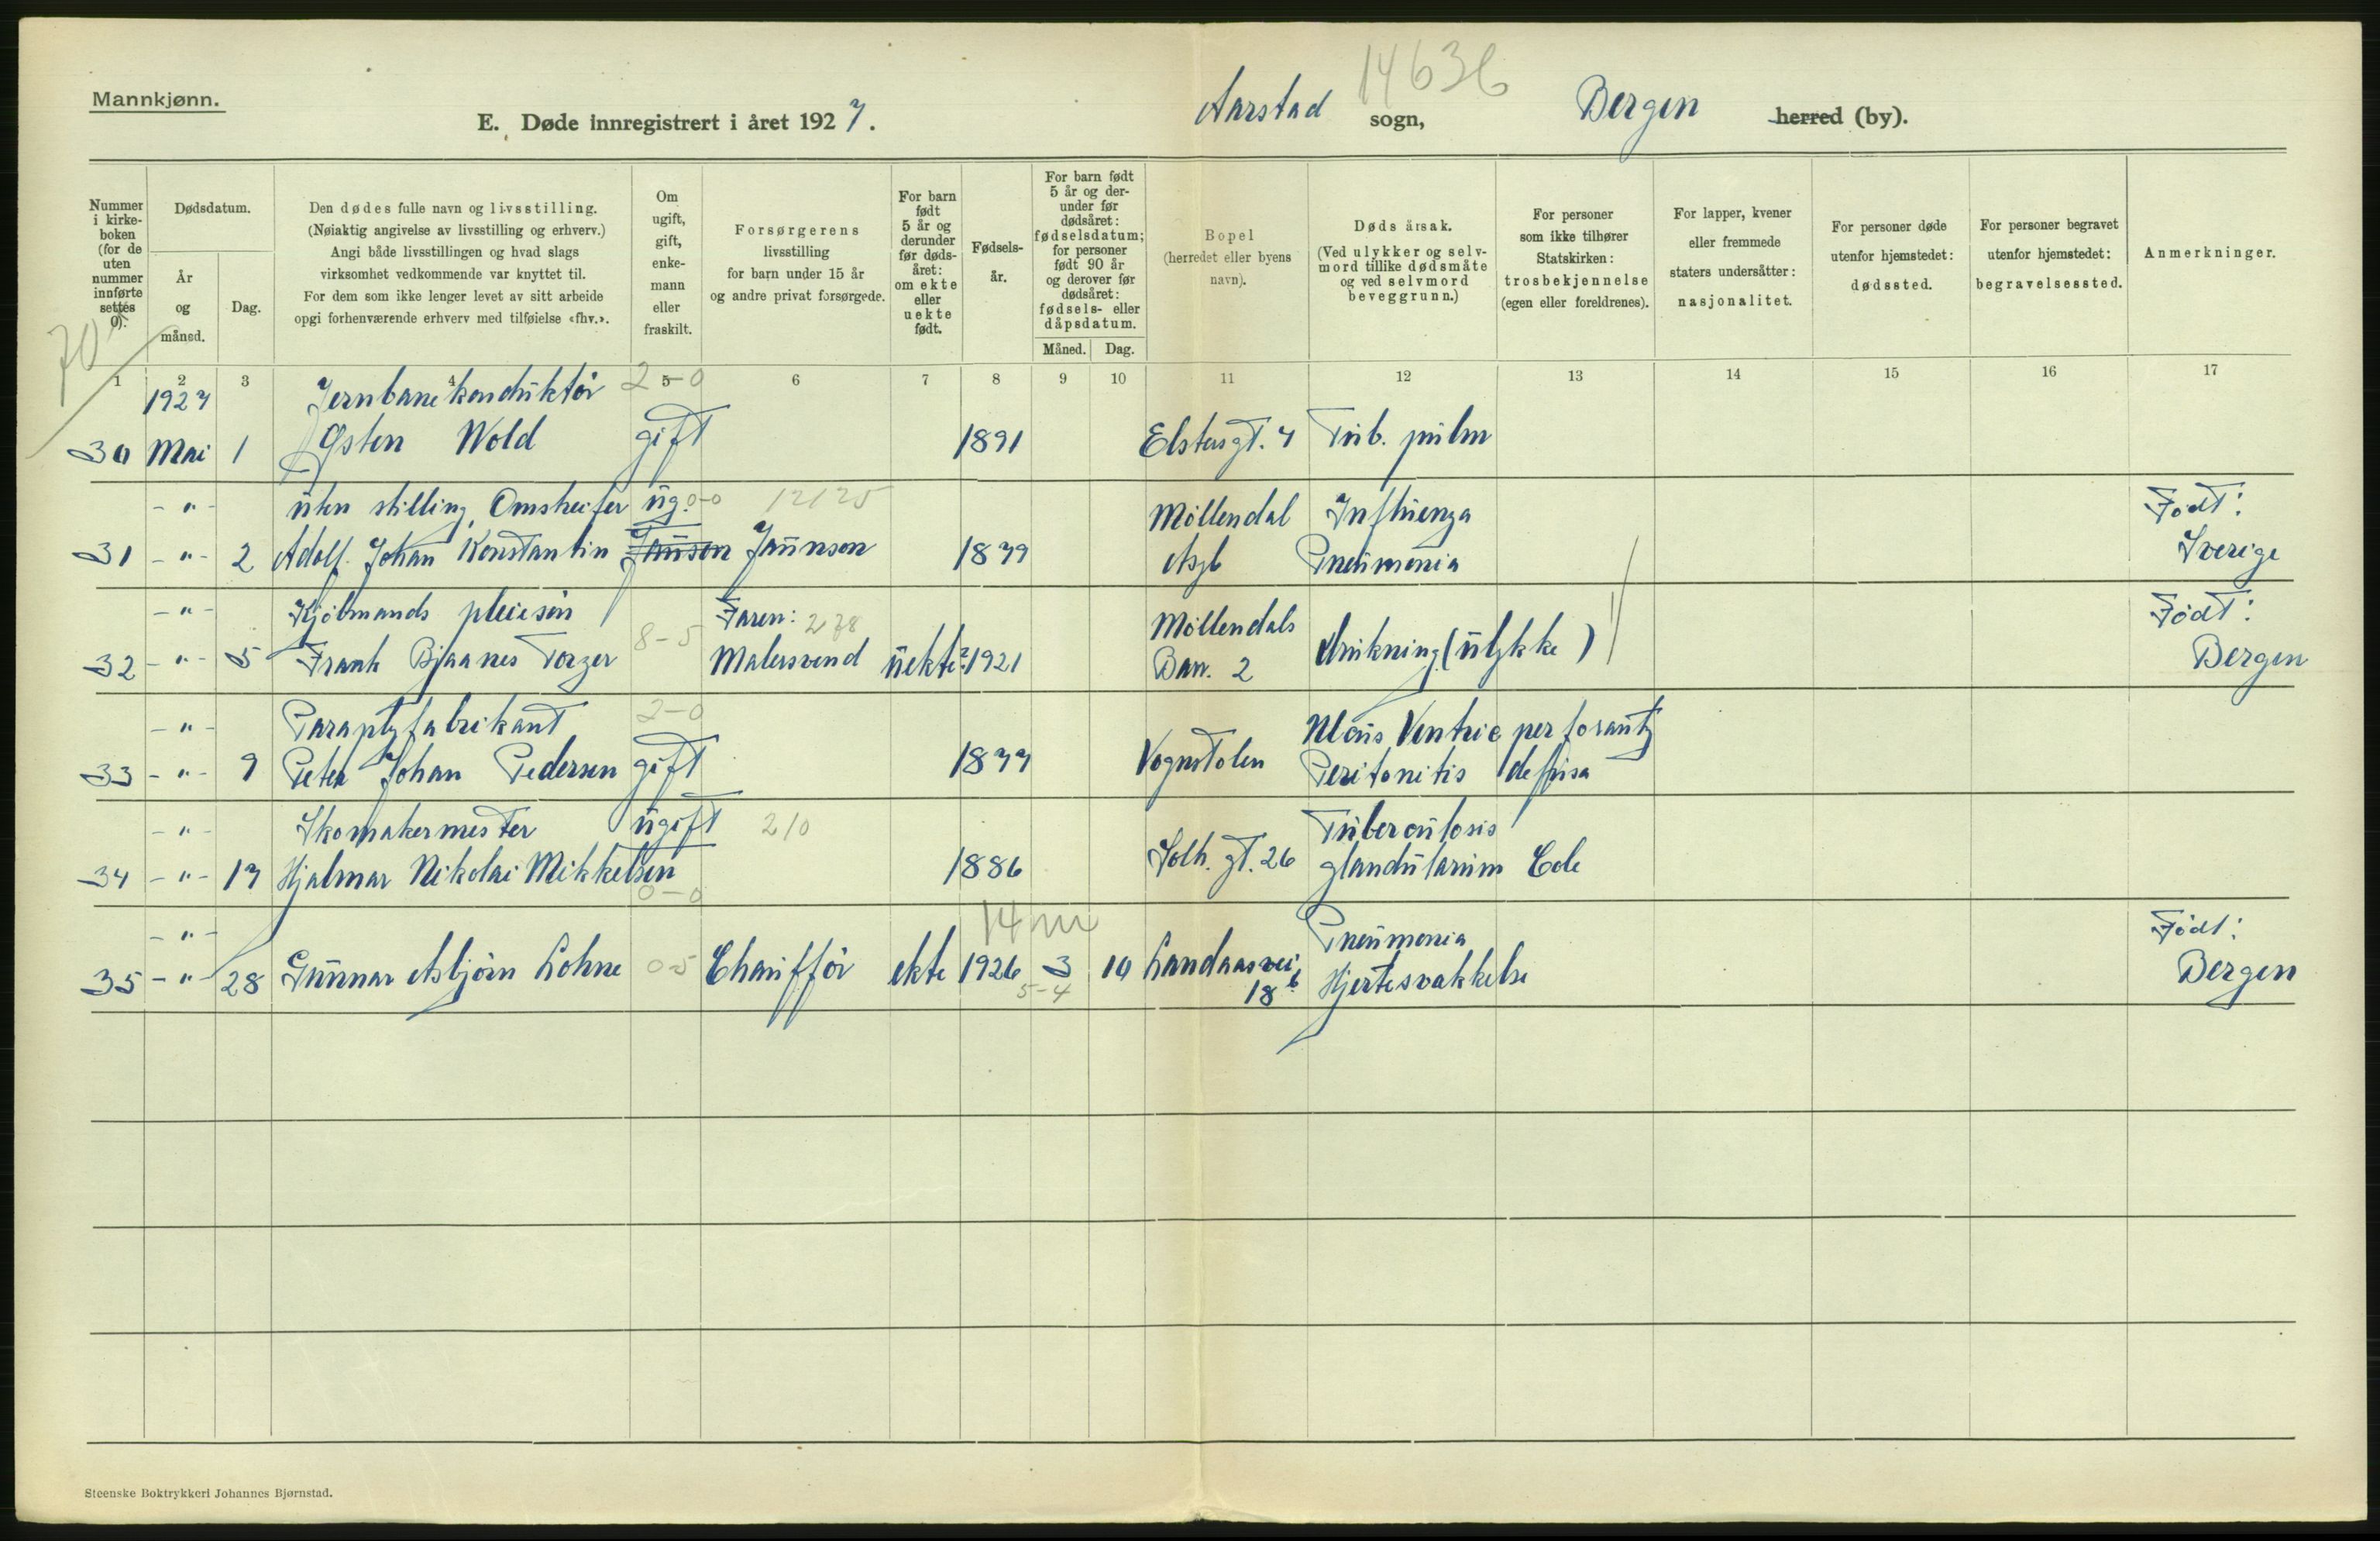 Mannkjønn.
14636
E. Døde innregistrert i året 1927.
Aarstad sogn, Bergen herred (by).
Nummer i kirke-boken (for de uten nummer innførte settes 0).
Dødsdatum.
År og måned.
Dag.
Den dødes fulle navn og livsstilling.
(Nøiaktig angivelse av livsstilling og erhverv.)
Angi både livsstillingen og hvad slags
virksomhet vedkommende var knyttet til.
For dem som ikke lenger levet av sitt arbeide
opgi forhenværende erhverv med tilføielse «fhv.».
Om ugift, gift, enke-mann eller fraskilt.
Forsørgerens
livsstilling
for barn under 15 år
og andre privat forsørgede.
For barn født 5 år og derunder før døds-året: om ekte eller uekte født.
Fødsels-år.
For barn født 5 år og der-under før dødsåret: fødselsdatum; for personer født 90 år og derover før dødsåret: fødsels- eller dåpsdatum.
Måned. Dag.
Bopel
(herredet eller byens navn).
Døds årsak.
(Ved ulykker og selv-mord tillike dødsmåte og ved selvmord beveggrunn.)
For personer
som ikke tilhører
Statskirken:
trosbekjennelse
(egen eller foreldrenes).
For lapper, kvener
eller fremmede
staters undersåtter:
nasjonalitet.
For personer døde
utenfor hjemstedet:
dødssted.
For personer begravet
utenfor hjemstedet:
begravelsessted.
Anmerkninger.
70
1 2 3 4 5 6 7 8 9 10 11 12 13 14 15 16 17
1927 Jernbanekonduktör 2-0
30 Mai 1 Østen Wold gift 1891 Elstersgt. 7 Tub. pulm
-"- uten stilling, Omstreifer ug. 0-0 12125 Möllendal Influenza Födt:
31 -"- 2 Adolf Johan Konstantin Jansen Jaunson 1879 Asyl Pneumonia Sverige
-"- Kjölmands pleiesön 8-5 Faren: 278 Möllendals Födt:
32 -"- 5 Frank Bjaanes Torger Malersvend uekte? 1921 Barr. 2 drukning (ulykke) Bergen
-"- Paraplyfabrikant 2-0 Ulcus Ventric perforants
33 -"- 9 Peter Johan Pedersen gift 1877 Vognstolen Peritonitis diffusa
-"- Skomakermester ugift 210 Tuberculosis
34 -"- 17 Hjalmar Nikolai Mikkelsen 0-0 1886 Solh. gt. 26 glandularum Cole
-"- 14 m Pneumonia Födt:
35 -"- 28 Gunnar Asbjörn Lohne 0-5 Chaufför ekte 1926 3 10 Landaasvei 18b Hjertesvakkelse Bergen
5-4
Steenske Boktrykkeri Johannes Bjørnstad.